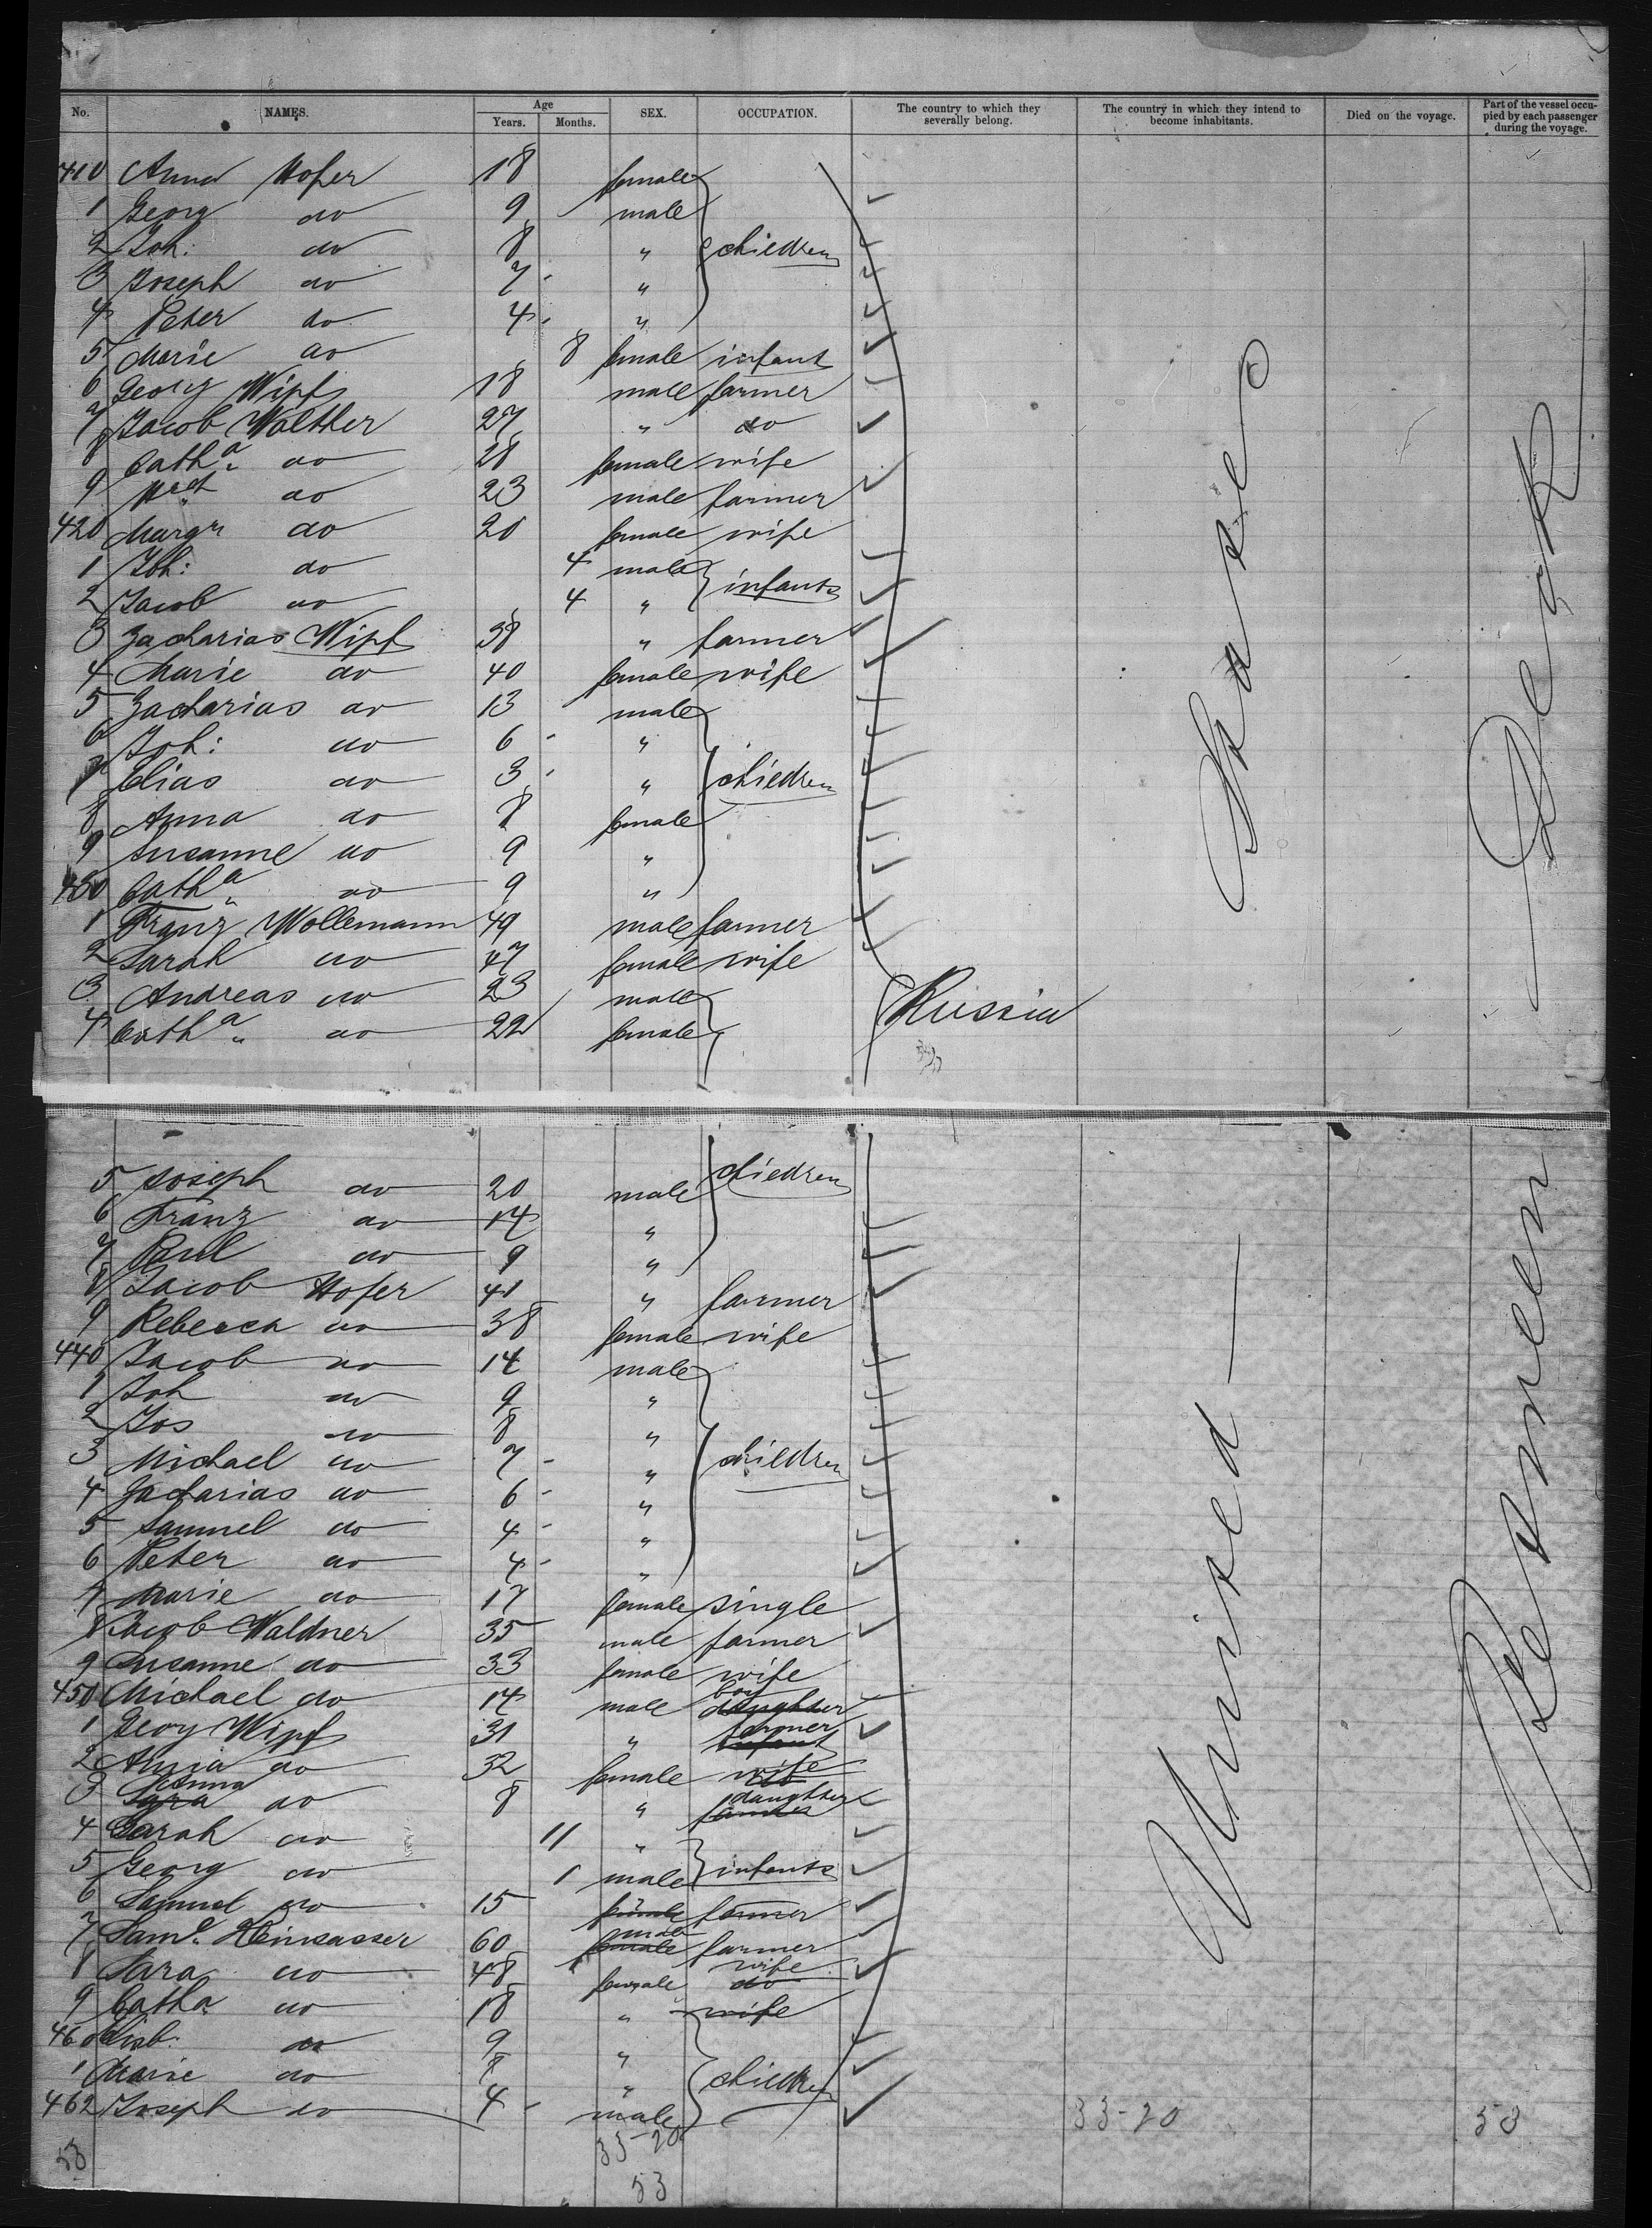 No. NAMES. Age Years. Months. SEX. OCCUPATION. The country to which they severally belong. The country in which they intend to become inhabitants. Died on the voyage. Part of the vessel occupied by each passenger during the voyage.
410 Anna Hofer 18 female
1 Georg do 9 male
2 Joh: do 8 "
children
3 Joseph do 7 "
4 Peter do 4 "
5 Marie do 8 female infant
6 Georg Wipf 18 male farmer
7 Jacob Walther 27 " do
8 Cath.a do 28 female wife
9 do 23 male farmer
420 Margr do 20 female wife
1 Joh: do 4 male
infants
2 Jacob do 4 "
3 Zacharias Wipf 38 " farmer
4 Marie do 40 female wife
5 Zacharias do 13 male
6 Joh: do 6 "
7 Elias do 3 " children
8 Anna do 8 female
9 Susanne do 9 "
430 Cath.a do 9 "
1 Franz Wollemann 49 male farmer
2 Sarah do 47 female wife
3 Andreas do 23 male
Russia
4 Cath.a do 22 female
States
Deck
5 Joseph do 20 male children
6 Franz do 14 "
7 Paul do 9 "
8 Jacob Hofer 41 " farmer
9 Rebecca do 38 female wife
440 Jacob do 14 male
1 Joh do 9 "
2 Jos do 8 "
3 Michael do 7 " children
4 Zacharias do 6 "
5 Samuel do 4 "
6 Peter do 4 "
7 Marie do 17 female single
8 Jacob Waldner 35 male farmer
9 Susanne do 33 female wife
450 Michael do 14 male boy daughter
1 Georg Wipf 31 " farmer infant
2 Anna do 32 female wife
3 Anna Sara do 8 " daughter
4 Sarah do 11 "
infants
5 Georg do 1 male
6 Samuel do 15 female farmer
7 Saml. Kleinsasser 60 male female farmer
8 Sara do 48 female wife do
9 Catha do 18 " wife
460 Lisb: do 9 "
1 Marie do 8 " children
462 Joseph do 4 male
United
Between
53 33-20 33-20 53
53